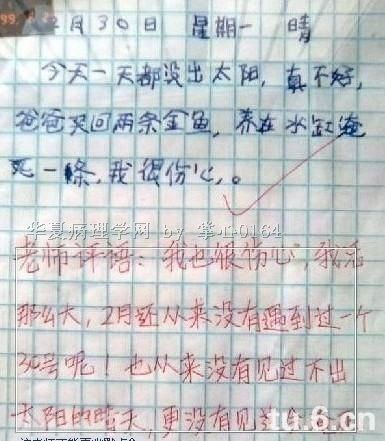 2月30日 星期一 晴
今天一天都没出太阳,真不好,
爸爸买回两条金鱼,养在水缸淹
死一條,我很伤心。
华夏病理学网 by 掌心0164
老师评语:我也很伤心,我活
那么大,2月还从来没有遇到过一个
30号呢!也从来没有见过不出
太阳的晴天,更没有见过
tu.6.cn